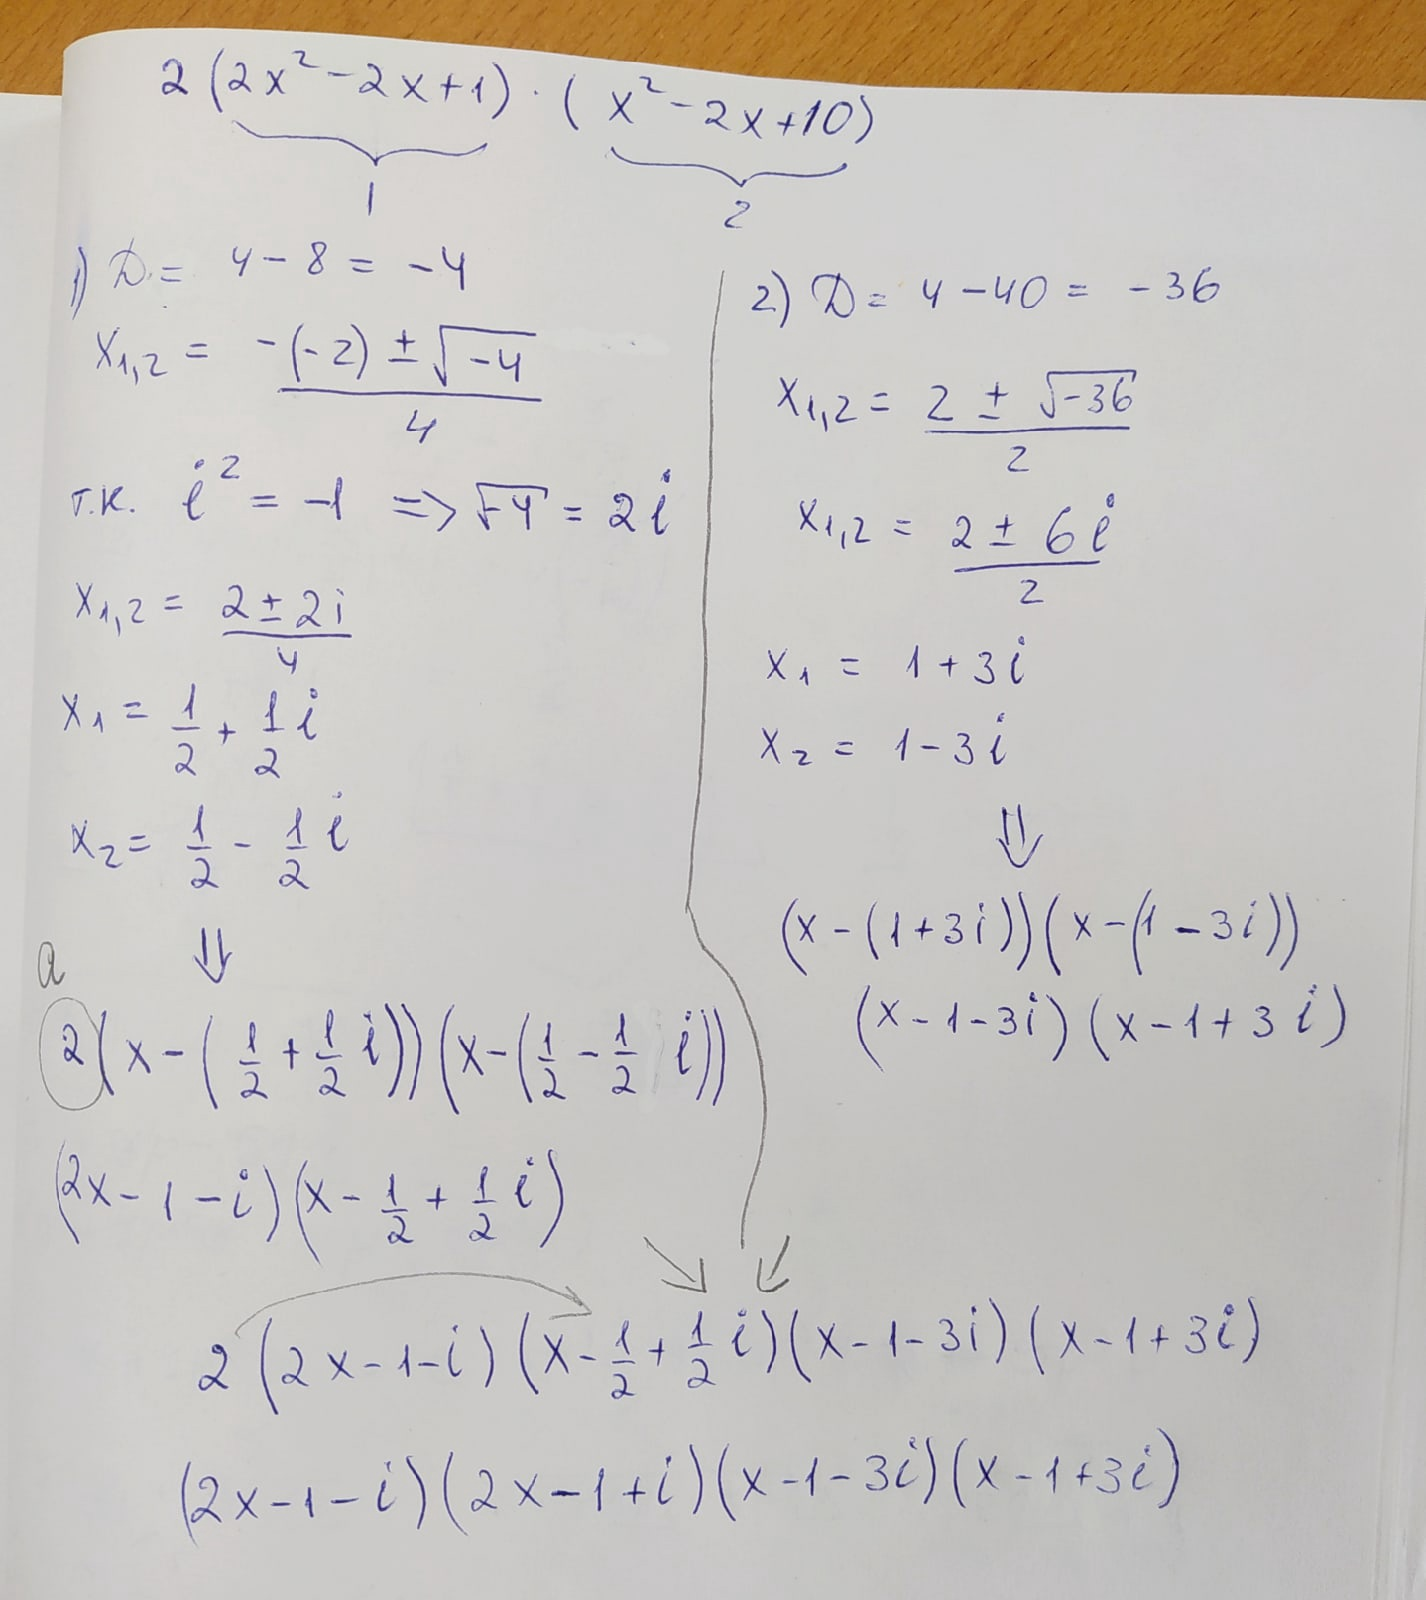 2 (2x² - 2x + 1) · (x² - 2x + 10)
1
2
1) D = 4 - 8 = -4
x₁,₂ = (-(-2) ± √-4) / 4
т.к. i² = -1 => √-4 = 2i
x₁,₂ = (2 ± 2i) / 4
x₁ = 1/2 + 1/2 i
x₂ = 1/2 - 1/2 i
⇓
a
2 (x - (1/2 + 1/2 i)) (x - (1/2 - 1/2 i))
(2x - 1 - i) (x - 1/2 + 1/2 i)
2) D = 4 - 40 = -36
x₁,₂ = (2 ± √-36) / 2
x₁,₂ = (2 ± 6i) / 2
x₁ = 1 + 3i
x₂ = 1 - 3i
⇓
(x - (1 + 3i)) (x - (1 - 3i))
(x - 1 - 3i) (x - 1 + 3i)
2 (2x - 1 - i) (x - 1/2 + 1/2 i) (x - 1 - 3i) (x - 1 + 3i)
(2x - 1 - i) (2x - 1 + i) (x - 1 - 3i) (x - 1 + 3i)